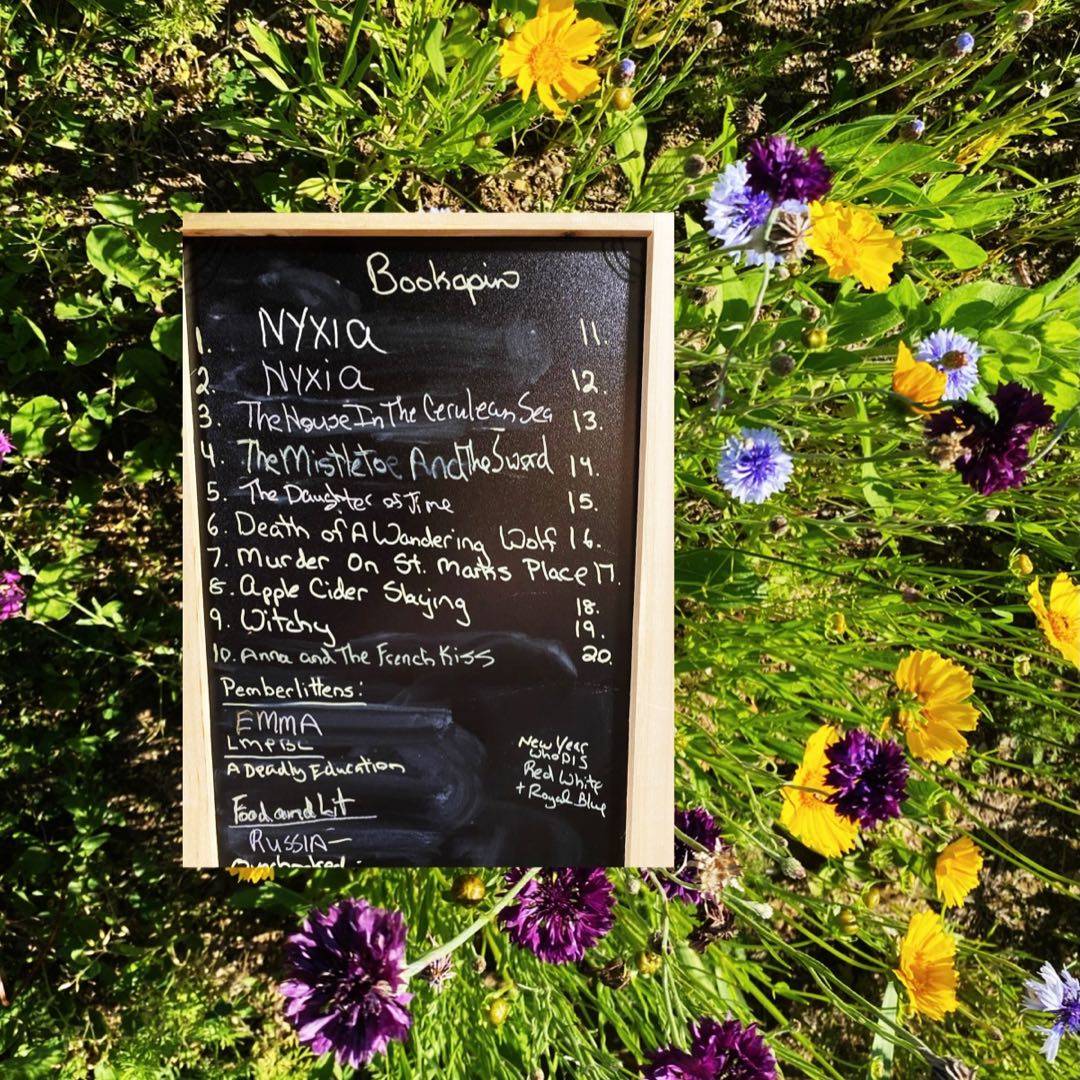 Bookopin
1. NYXIA 11.
2. NYXIA 12.
3. The House In The Cerulean Sea 13.
4. The Mistletoe And The Sword 14.
5. The Daughter of Time 15.
6. Death of A Wandering Wolf 16.
7. Murder On St. Marks Place 17.
8. Apple Cider Slaying 18.
9. Witchy 19.
10. Anna and The French Kiss 20.
Pemberlittens:
EMMA
LMPBC
A Deadly Education
Food and Lit
RUSSIA-
New Year
WhoDis
Red White
+ Royal Blue